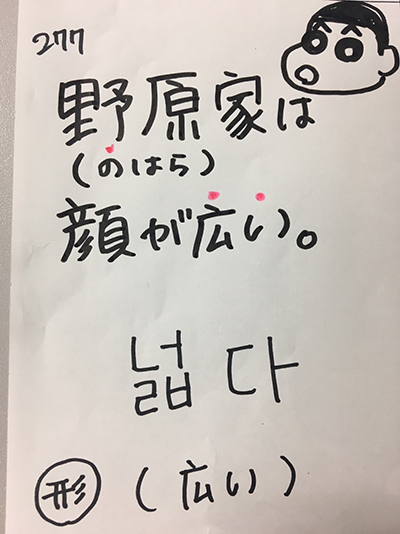 277
野原家は
(のはら)
顔が広い。
넓다
形 (広い)